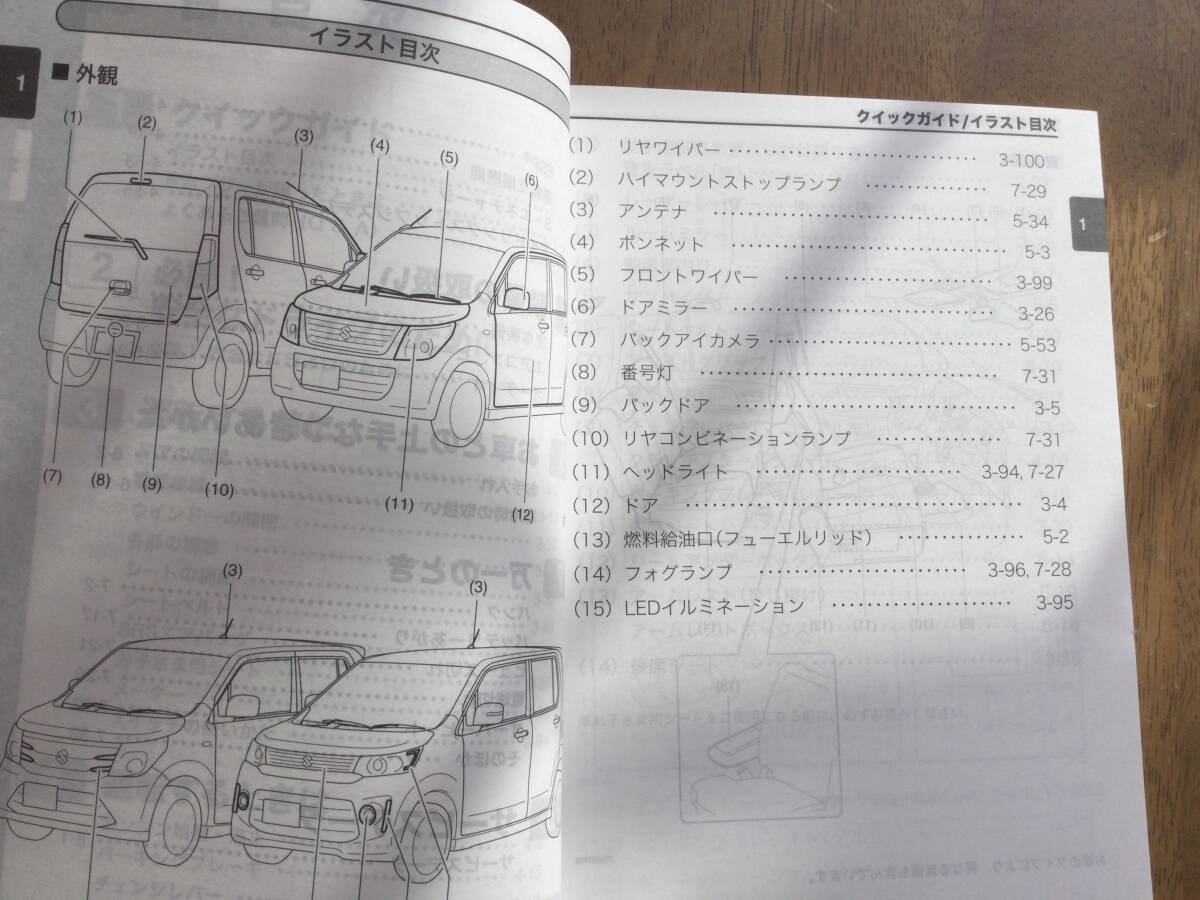 イラスト目次
1
■ 外観
(1)
(2)
(3)
(4)
(5)
(6)
(7)
(8)
(9)
(10)
(11)
(12)
(3)
(3)
クイックガイド/イラスト目次
1
(1) リヤワイパー ････････････････････････ 3-100
(2) ハイマウントストップランプ ････････････ 7-29
(3) アンテナ ････････････････････････ 5-34
(4) ボンネット ････････････････････････ 5-3
(5) フロントワイパー ････････････････････ 3-99
(6) ドアミラー ････････････････････････ 3-26
(7) バックアイカメラ ････････････････････ 5-53
(8) 番号灯 ････････････････････････ 7-31
(9) バックドア ････････････････････････ 3-5
(10) リヤコンビネーションランプ ････････････ 7-31
(11) ヘッドライト ････････････････････ 3-94, 7-27
(12) ドア ････････････････････････ 3-4
(13) 燃料給油口(フューエルリッド) ････････････ 5-2
(14) フォグランプ ････････････････････ 3-96, 7-28
(15) LEDイルミネーション ････････････････････ 3-95